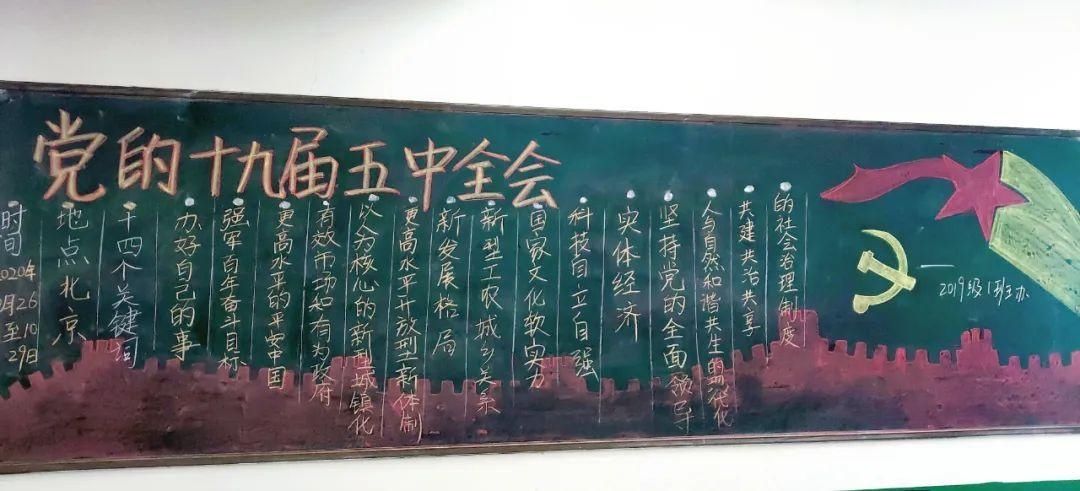 党的十九届五中全会
时间
2020年
月26
至10
29日
地点北京
十四个关键词
办好自己的事
强军百年奋斗目标
更高水平的平安中国
有效市场和有为政府
以人为核心的新型城镇化
更高水平开放型新体制
新发展格局
新型工农城乡关系
国家文化软实力
科技自立自强
实体经济
坚持党的全面领导
人与自然和谐共生的现代化
共建共治共享
的社会治理制度
—2019级1班主办